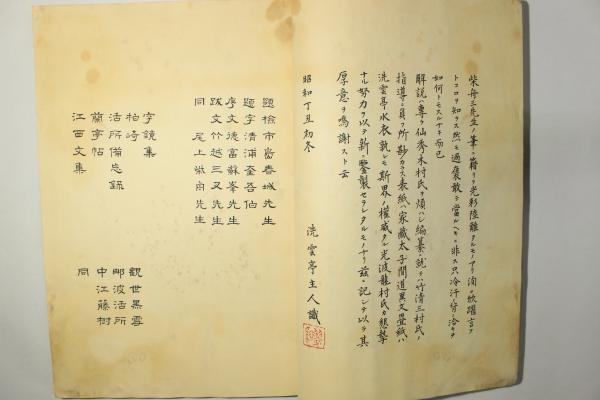 柴舟三先生ノ筆ニ籍リ光彩陸離タルモノアリ洵ニ欣躍言フ
トコロヲ知ラス然レモ過褒敢テ當ルヘキニ非ス只冷汗ノ背ニ洽キヲ
如何トモスルナキ而已
解説ハ專ラ仙秀木村氏ヲ煩ハシ編纂ニ就テハ竹清三村氏ノ
指導ニ負フ所尠カラス表紙ハ家藏太子間道異文疊紙ハ
洗雲亭水衣孰レモ斯界ノ權威タル光波龍村氏カ懇摯
ナル努力ヲ以テ新ニ鑒製セラレタルモノナリ茲ニ記シテ以テ其
厚意ヲ鳴謝スト云
昭和丁丑初冬
洗雲亭主人識
題檢市島春城先生
題字清浦奎吾伯
序文徳富蘇峯先生
跋文竹越三叉先生
同 尾上柴舟先生
字鏡集
柏崎 觀世黒雪
活所備忘録 那波活所
蘭亭帖 中江藤樹
江西文集 同